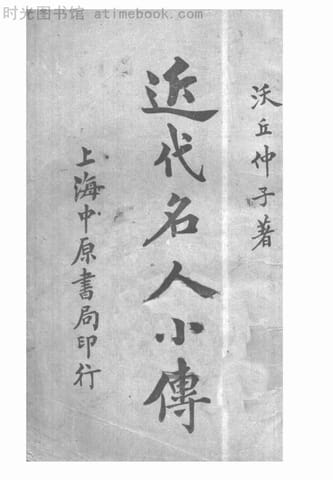 时光图书馆 - atimebook.com
沃丘仲子著
近代名人小傳
上海中原書局印行